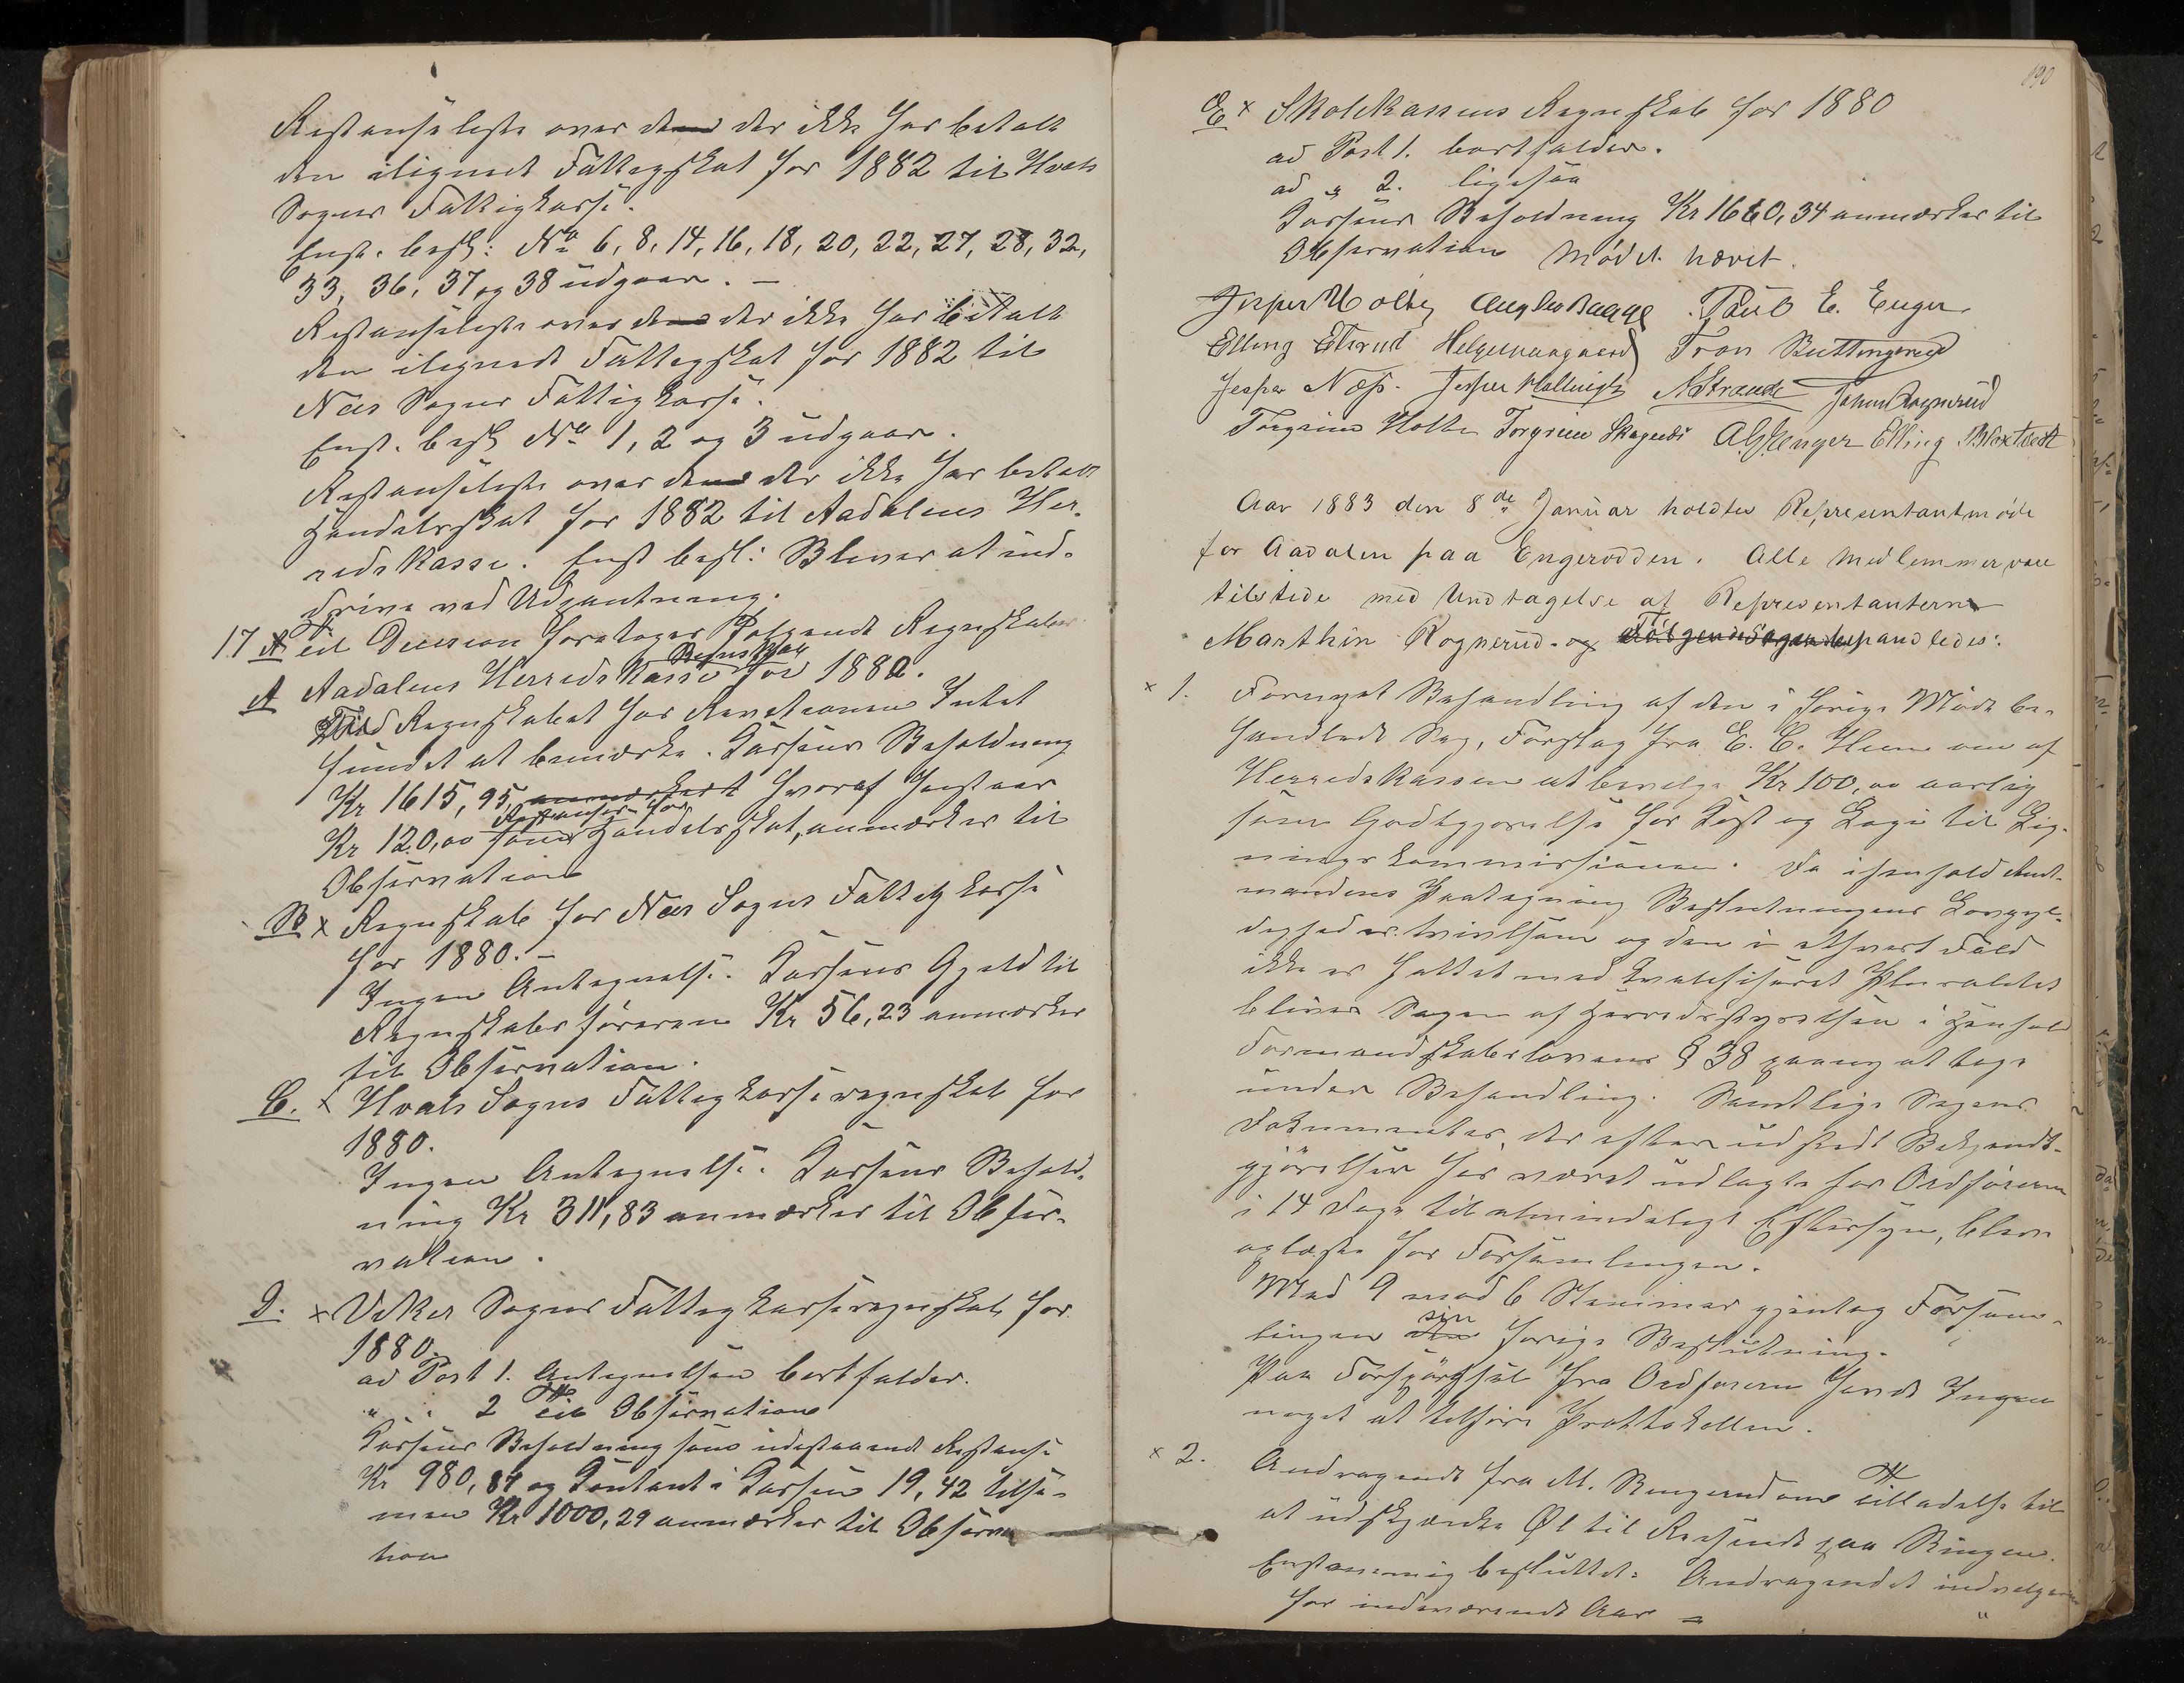 Restanseliste over dem der ikke har betalt
den ilignede Fattigskat for 1882 til Hvals
Sogns Fattigkasse.
Enst. besl: No 6, 8, 14, 16, 18, 20, 22, 27, 28, 32,
33, 36, 37 og 38 udgaar. –
Restanseliste over dem der ikke har betalt
den ilignede Fattigskat for 1882 til
Næs Sogns Fattigkasse.
Enst. besl No 1, 2 og 3 udgaar.
Restanseliste over dem der ikke har betalt
Handelsskat for 1882 til Aadalens Her-
redskasse. Enst besl: Bliver at ind-
drive ved Udpantning.
17 x Til Decision foretages følgende Regnskaber
A Aadalens Herredskasse Regnskab for 1880.
Til Regnskabet har Revisionen Intet
fundet at bemærke. Kassens Beholdning
Kr 1615,95, anmærkedt hvoraf henstaar
Kr 120,00 som Restanser for Handelsskat, anmærkes til
Observation
B x Regnskab for Næs Sogns Fattigkasse
for 1880. –
Ingen Antegnelse. Kassens Gjeld til
Regnskabsføreren Kr 56,23 anmærkes
til Observation.
C. x Hvals Sogns Fattigkasseregnskab for
1880.
Ingen Antegnelse. Kassens Behold-
ning Kr 311,83 anmærkes til Obser-
vation.
D. x Viker Sogns Fattigkasseregnskab for
1880.
ad Post 1. Antegnelsen bortfalder.
" " 2 Til Observation
Kassens Beholdning som udestaaende Restanse
Kr 980,87 og Kontant i Kassen 19,42 tilsa-
men Kr 1000,29 anmærkes til Observa
tion
190
E x Skolekassens Regnskab for 1880
ad Post 1. bortfalder.
ad " 2. ligesaa
Kassens Beholdning Kr 1660,34 anmærkes til
Observation Mødet hævet.
Jesper Holte Paul E. Enger
Elling Elsrud Tron Buttingsrud
Jesper Næs. Jesper NStrande Johan Rognerud
Torgrim Holte Torgrim AGStenger Elling Bloxtvedt
Aar 1883 den 8de Januar holdtes Representantmøde
for Aadalen paa Engerodden. Alle Medlemmer vare
tilstede med Undtagelse af Representanterne
Marthin Rognerud og Følgende Sager behandledes:
x 1. Fornyet Behandling af den i forige Møde be-
handlede Sag, Forslag fra E. C. Hum om af
Herredskassen at bevilge Kr 100,00 aarlig
som Godtgjørelse for Kost og Logi til Lig-
ningskommissionen. Da ihenhold Amt-
mandens Paategning Beslutningens Lovgyl-
dighed er tvivlsom og den i ethvert Fald
ikke er fattet med kvalificeret Pluralitet
bliver Sagen af Herredsstyrelsen i Henhold
Formandskabslovens § 38 paany at tage
under Behandling. Samtlige Sagens
Dokumenter, der efter udstedt Bekjendt-
gjørelse har været udlagte hos Ordføreren
i 14 Dage til almindeligt Eftersyn, bleve
oplæste for Forsamlingen.
Med 9 mod 6 Stemmer gjentog Forsam-
lingen den sin forige Beslutning.
Paa Forspørgsel fra Ordføreren havde Ingen
noget at tilføre Prottokollen.
x 2. Andragende fra M. Ringerud om Tilladelse til
at udskjænke Øl til Reisende paa Ringerud.
Enstemmig besluttet: Andragendet indvilges
for indeværende Aar =